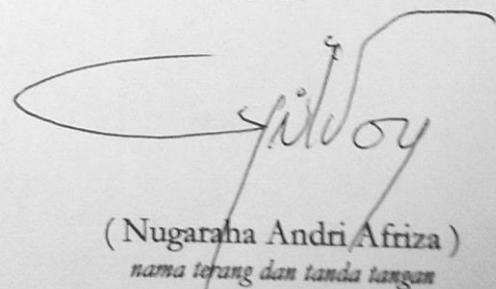 ( Nugaraha Andri Afriza )
nama terang dan tanda tangan